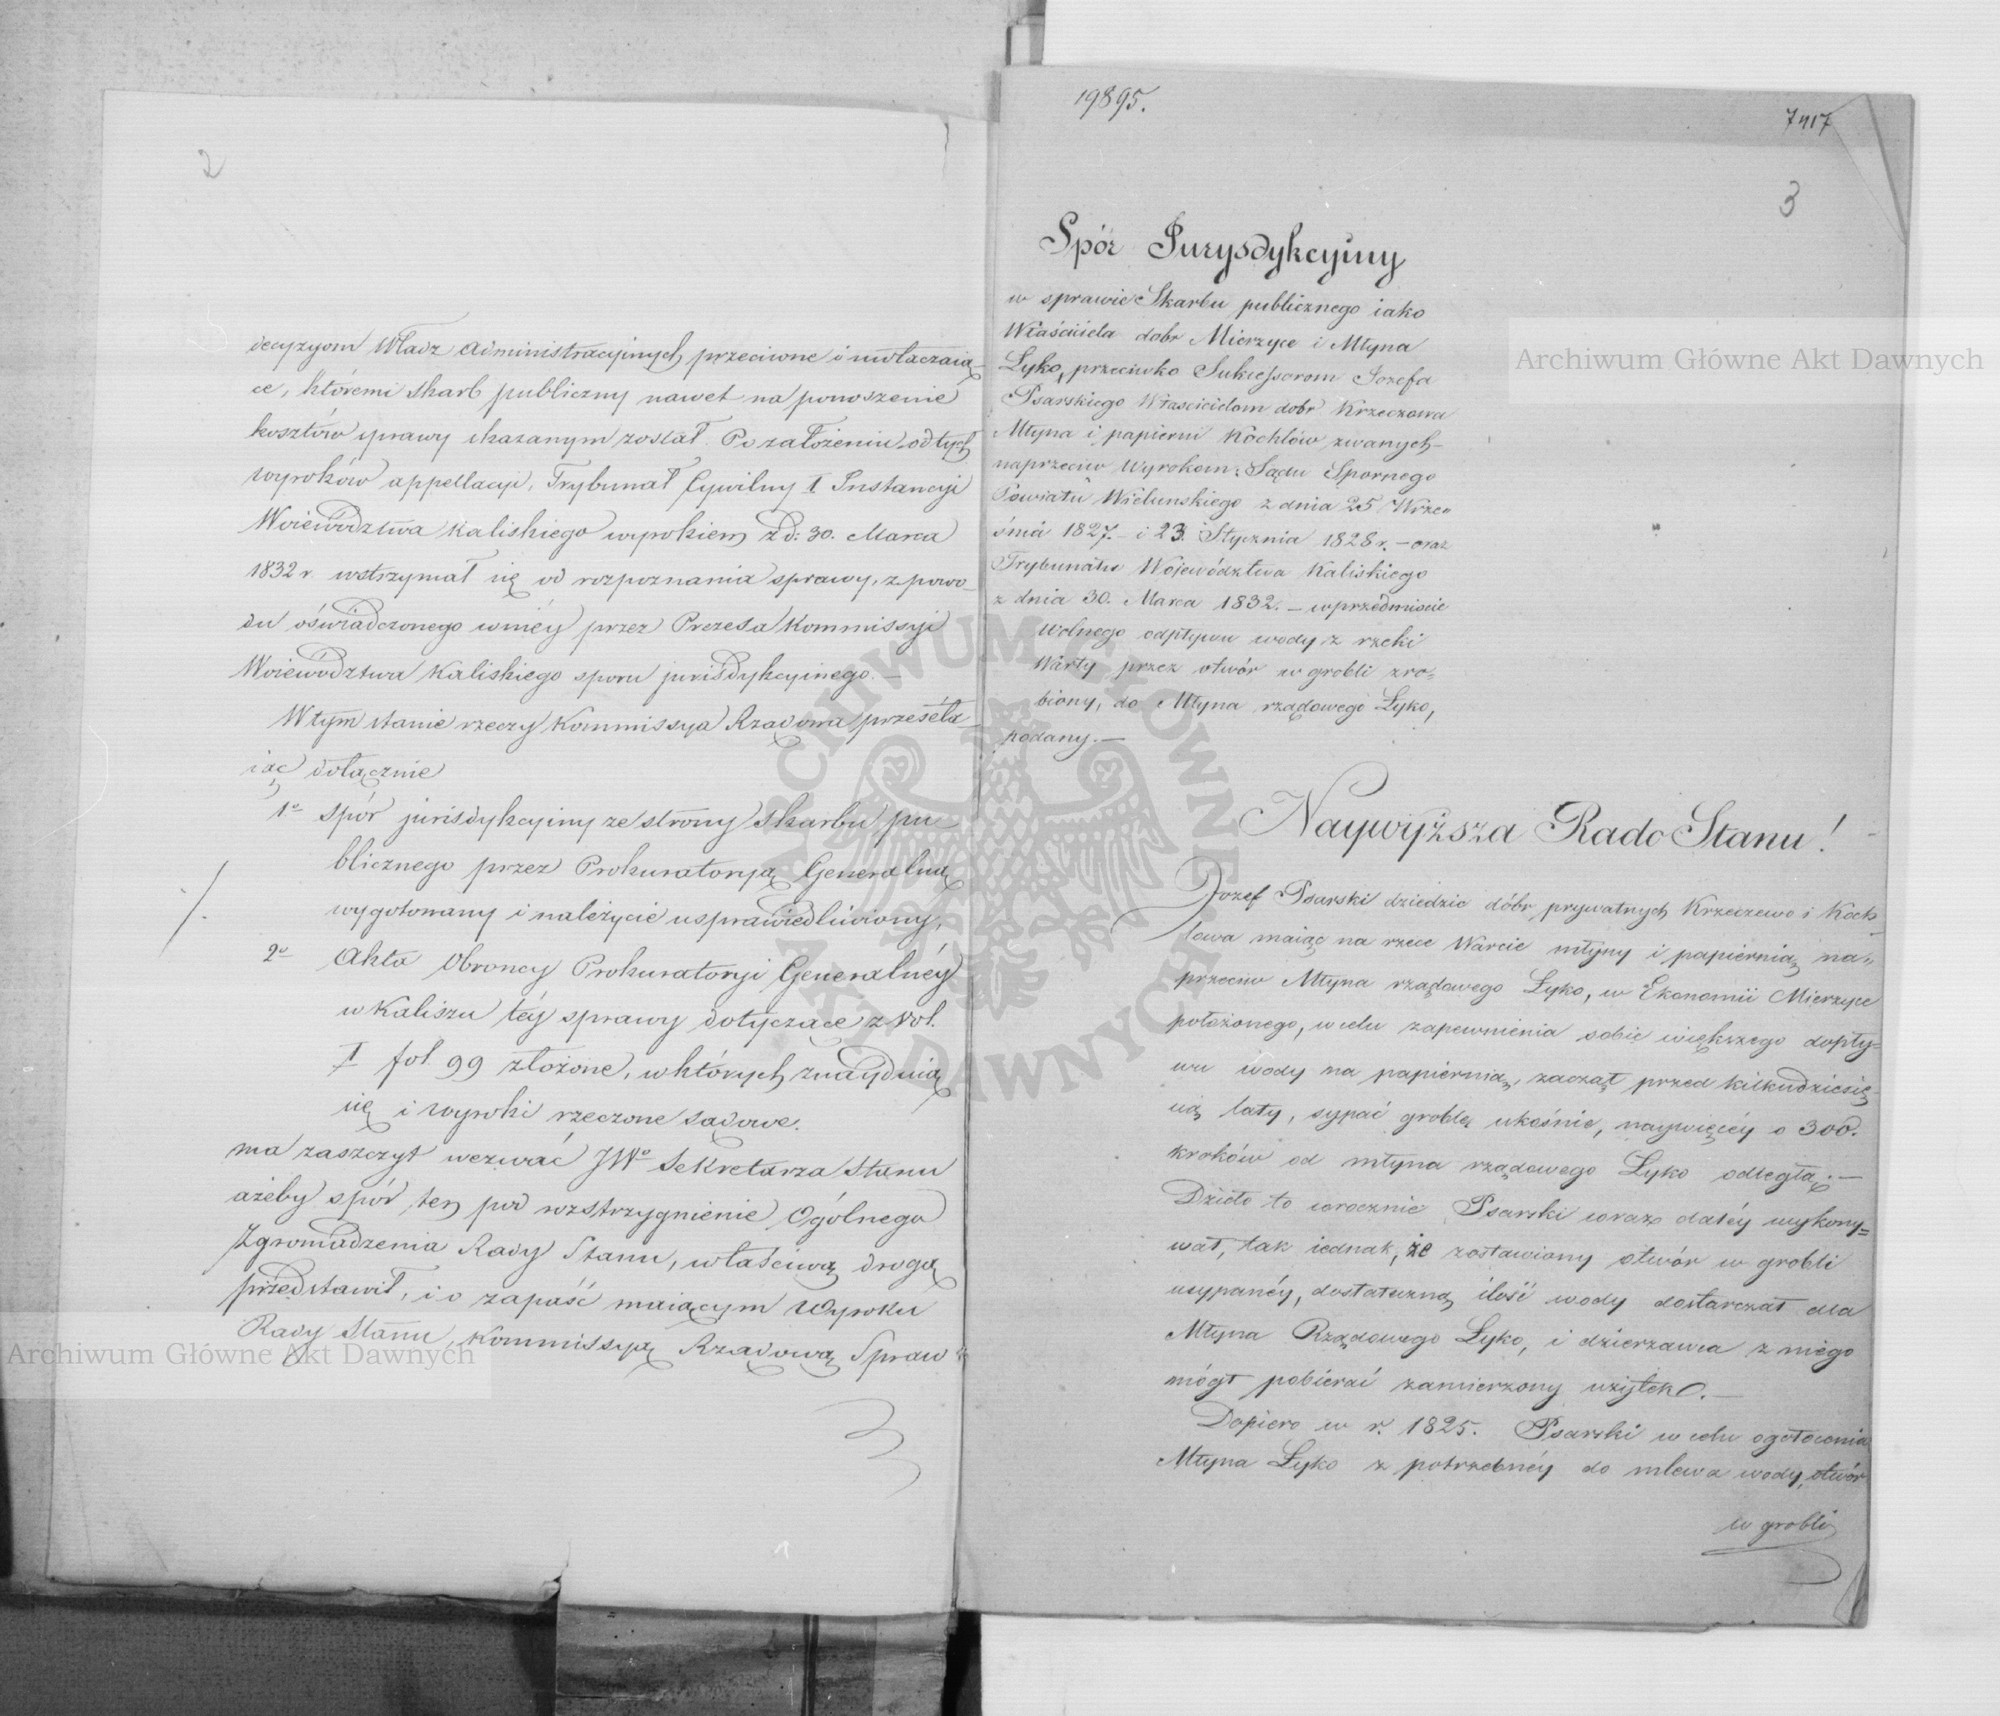 2
decyzyom Władz administracyinych, przeciwne i uwłaczaią-
ce, któremi Skarb publiczny nawet na ponoszenie
kosztów sprawy skazanym został. Po założeniu od tych
wyroków appellacyi, Trybunał Cywilny I Instancyi
Woiewództwa Kaliskiego wyrokiem z d: 30. Marca
1832 r. wstrzymał się od rozpoznania sprawy, z powo-
du oświadczonego w niéy przez Prezesa Kommissyi
Woiewództwa Kaliskiego sporu jurisdykcyinego. –
W tym stanie rzeczy Kommissya Rządowa przeséła-
iąc dołącznie
1o spór jurisdykcyiny ze strony Skarbu pu-
blicznego przez Prokuratoryą Generalną
wygotowany i należycie usprawiedliwiony,
2o Akta Obroncy Prokuratoryi Generalnéy
w Kaliszu téy sprawy dotyczące z Vol.
I fol 99 złożone, w których znayduią
się i wyroki rzeczone sądowe.
ma zaszczyt wezwać JWo Sekretarza Stanu
ażeby spór ten pod rozstrzygnienie Ogólnego
Zgromadzenia Rady Stanu, właściwą drogą
przedstawił, i o zapaść maiącym Wyroku
Rady Stanu, Kommissyą Rządową Spraw
19895.
7417
3
Spór Jurysdykcyiny
w sprawie Skarbu publicznego iako
Właściciela dobr Mierzyce i Młyna
Łyko, przeciwko Sukcessorom Jozefa
Psarskiego Właścicielom dobr Krzeczowa
Młyna i papierni Kochlów zwanych –
naprzeciw Wyrokom: Sądu Spornego
Powiatu Wielunskiego z dnia 25 Wrze-
śnia 1827. – i 23 Stycznia 1828 r. – oraz
Trybunału Województwa Kaliskiego
z dnia 30. Marca 1832. – w przedmiocie
Wolnego odpływu wody z rzeki
Warty przez otwór w grobli zro-
biony, do Młyna rządowego Łyko,
podany. –
Naywyższa Rado Stanu!
Jozef Psarski dziedzic dóbr prywatnych Krzeczewo i Koch-
lowa maiąc na rzece Warcie młyny i papiernią na-
przeciw Młyna rządowego Łyko, w Ekonomii Mierzyce
położonego, w celu zapewnienia sobie większego dopły-
wu wody na papiernią, zaczął przed kilkudziesię-
cią laty, sypać groblę ukośnie, naywięcéy o 300.
kroków od młyna rządowego Łyko odległą. –
Dzieło to corocznie Psarski coraz daléy wykony-
wał, tak iednak, że zostawiony otwór w grobli
usypanéy, dostateczną ilość wody dostarczał dla
Młyna Rządowego Łyko, i dzierzawca z niego
mógł pobierać zamierzony użytek. –
Dopiero w r. 1825. Psarski w celu ogołocenia
Młyna Łyko z potrzebnéy do mlewa wody, otwór
w grobli
Archiwum Główne Akt Dawnych
Archiwum Główne Akt Dawnych
ARCHIWUM GŁÓWNE AKT DAWNYCH